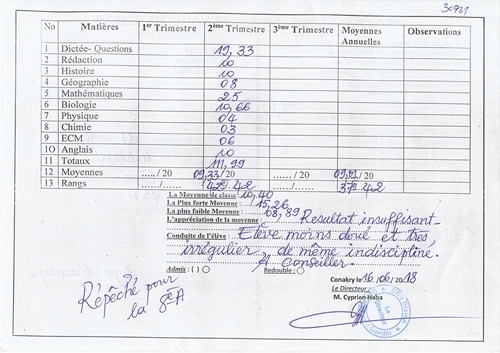 30931
No Matières 1er Trimestre 2ème Trimestre 3ème Trimestre Moyennes Annuelles Observations
1 Dictée- Questions 19,33
2 Rédaction 10
3 Histoire 10
4 Géographie 08
5 Mathématiques 25
6 Biologie 10,66
7 Physique 04
8 Chimie 03
9 ECM 06
10 Anglais 10
11 Totaux 111,99
12 Moyennes ...../ 20 09,33/ 20 ...../ 20 /20
13 Rangs ....../......
La Moyenne de classe 10,40
La Plus forte Moyenne : 15,26
La plus faible Moyenne : 08,89
L'appréciation de la moyenne : Resultat insuffisant-
Conduite de l'élève : Elève moins doué et très
irrégulier de même indiscipliné.
A Conseiller.
Admis : ( ) Redouble :
Répêché pour
la 8è A
Conakry le 16/06/2018
Le Directeur
M. Cyprien Haba